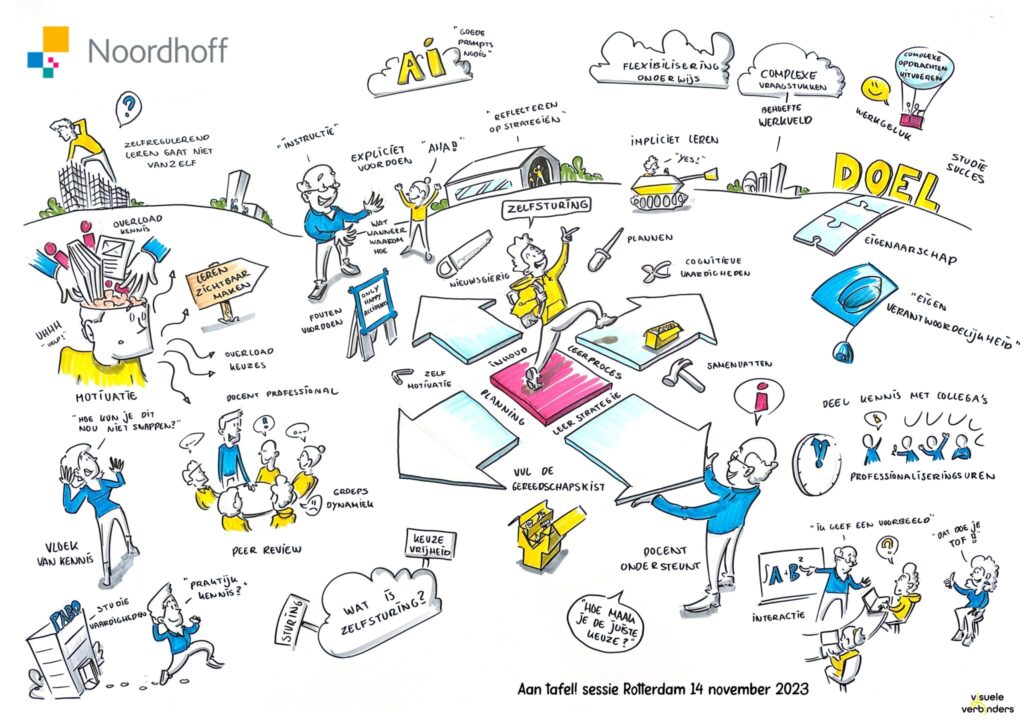 Noordhoff
Ai
"GOEDE
PROMPTS
NODIG"
FLEXIBILISERING
ONDERWIJS
COMPLEXE
VRAAGSTUKKEN
BEHOEFTE
WERKVELD
COMPLEXE
OPDRACHTEN
UITVOEREN
WERKGELUK
?
ZELFREGULEREND
LEREN GAAT NIET
VANZELF
"INSTRUCTIE"
EXPLICIET
VOORDOEN
"AHA!!"
"REFLECTEREN
OP STRATEGIËN"
IMPLICIET LEREN
"YES!"
DOEL
STUDIE
SUCCES
EIGENAARSCHAP
"EIGEN
VERANTWOORDELIJKHEID"
OVERLOAD
KENNIS
LEREN
ZICHTBAAR
MAKEN
UHHH
"HELP!"
OVERLOAD
KEUZES
MOTIVATIE
WAT
WANNEER
WAAROM
HOE
FOUTEN
VOORDOEN
ONLY
HAPPY
ACCIDENTS
ZELFSTURING
NIEUWSGIERIG
PLANNEN
COGNITIEVE
VAARDIGHEDEN
INHOUD
LEERPROCES
PLANNING
LEERSTRATEGIE
ZELF
MOTIVATIE
SAMENVATTEN
VUL DE
GEREEDSCHAPSKIST
"HOE KUN JE DIT
NOU NIET SNAPPEN?"
VLOEK
VAN KENNIS
DOCENT PROFESSIONAL
GROEPS
DYNAMIEK
PEER REVIEW
i
DOCENT
ONDERSTEUNT
DEEL KENNIS MET COLLEGA'S
PROFESSIONALISERINGSUREN
"IK GEEF EEN VOORBEELD"
A+B
2
?
"DAT DOE JE
TOF!!"
INTERACTIE
PABO
STUDIE
VAARDIGHEDEN
"PRAKTIJK
KENNIS?"
KEUZE
VRIJHEID
STURING
WAT IS
ZELFSTURING?
"HOE MAAK
JE DE JUISTE
KEUZE?"
Aan tafel! sessie Rotterdam 14 november 2023
visuele
verbinders